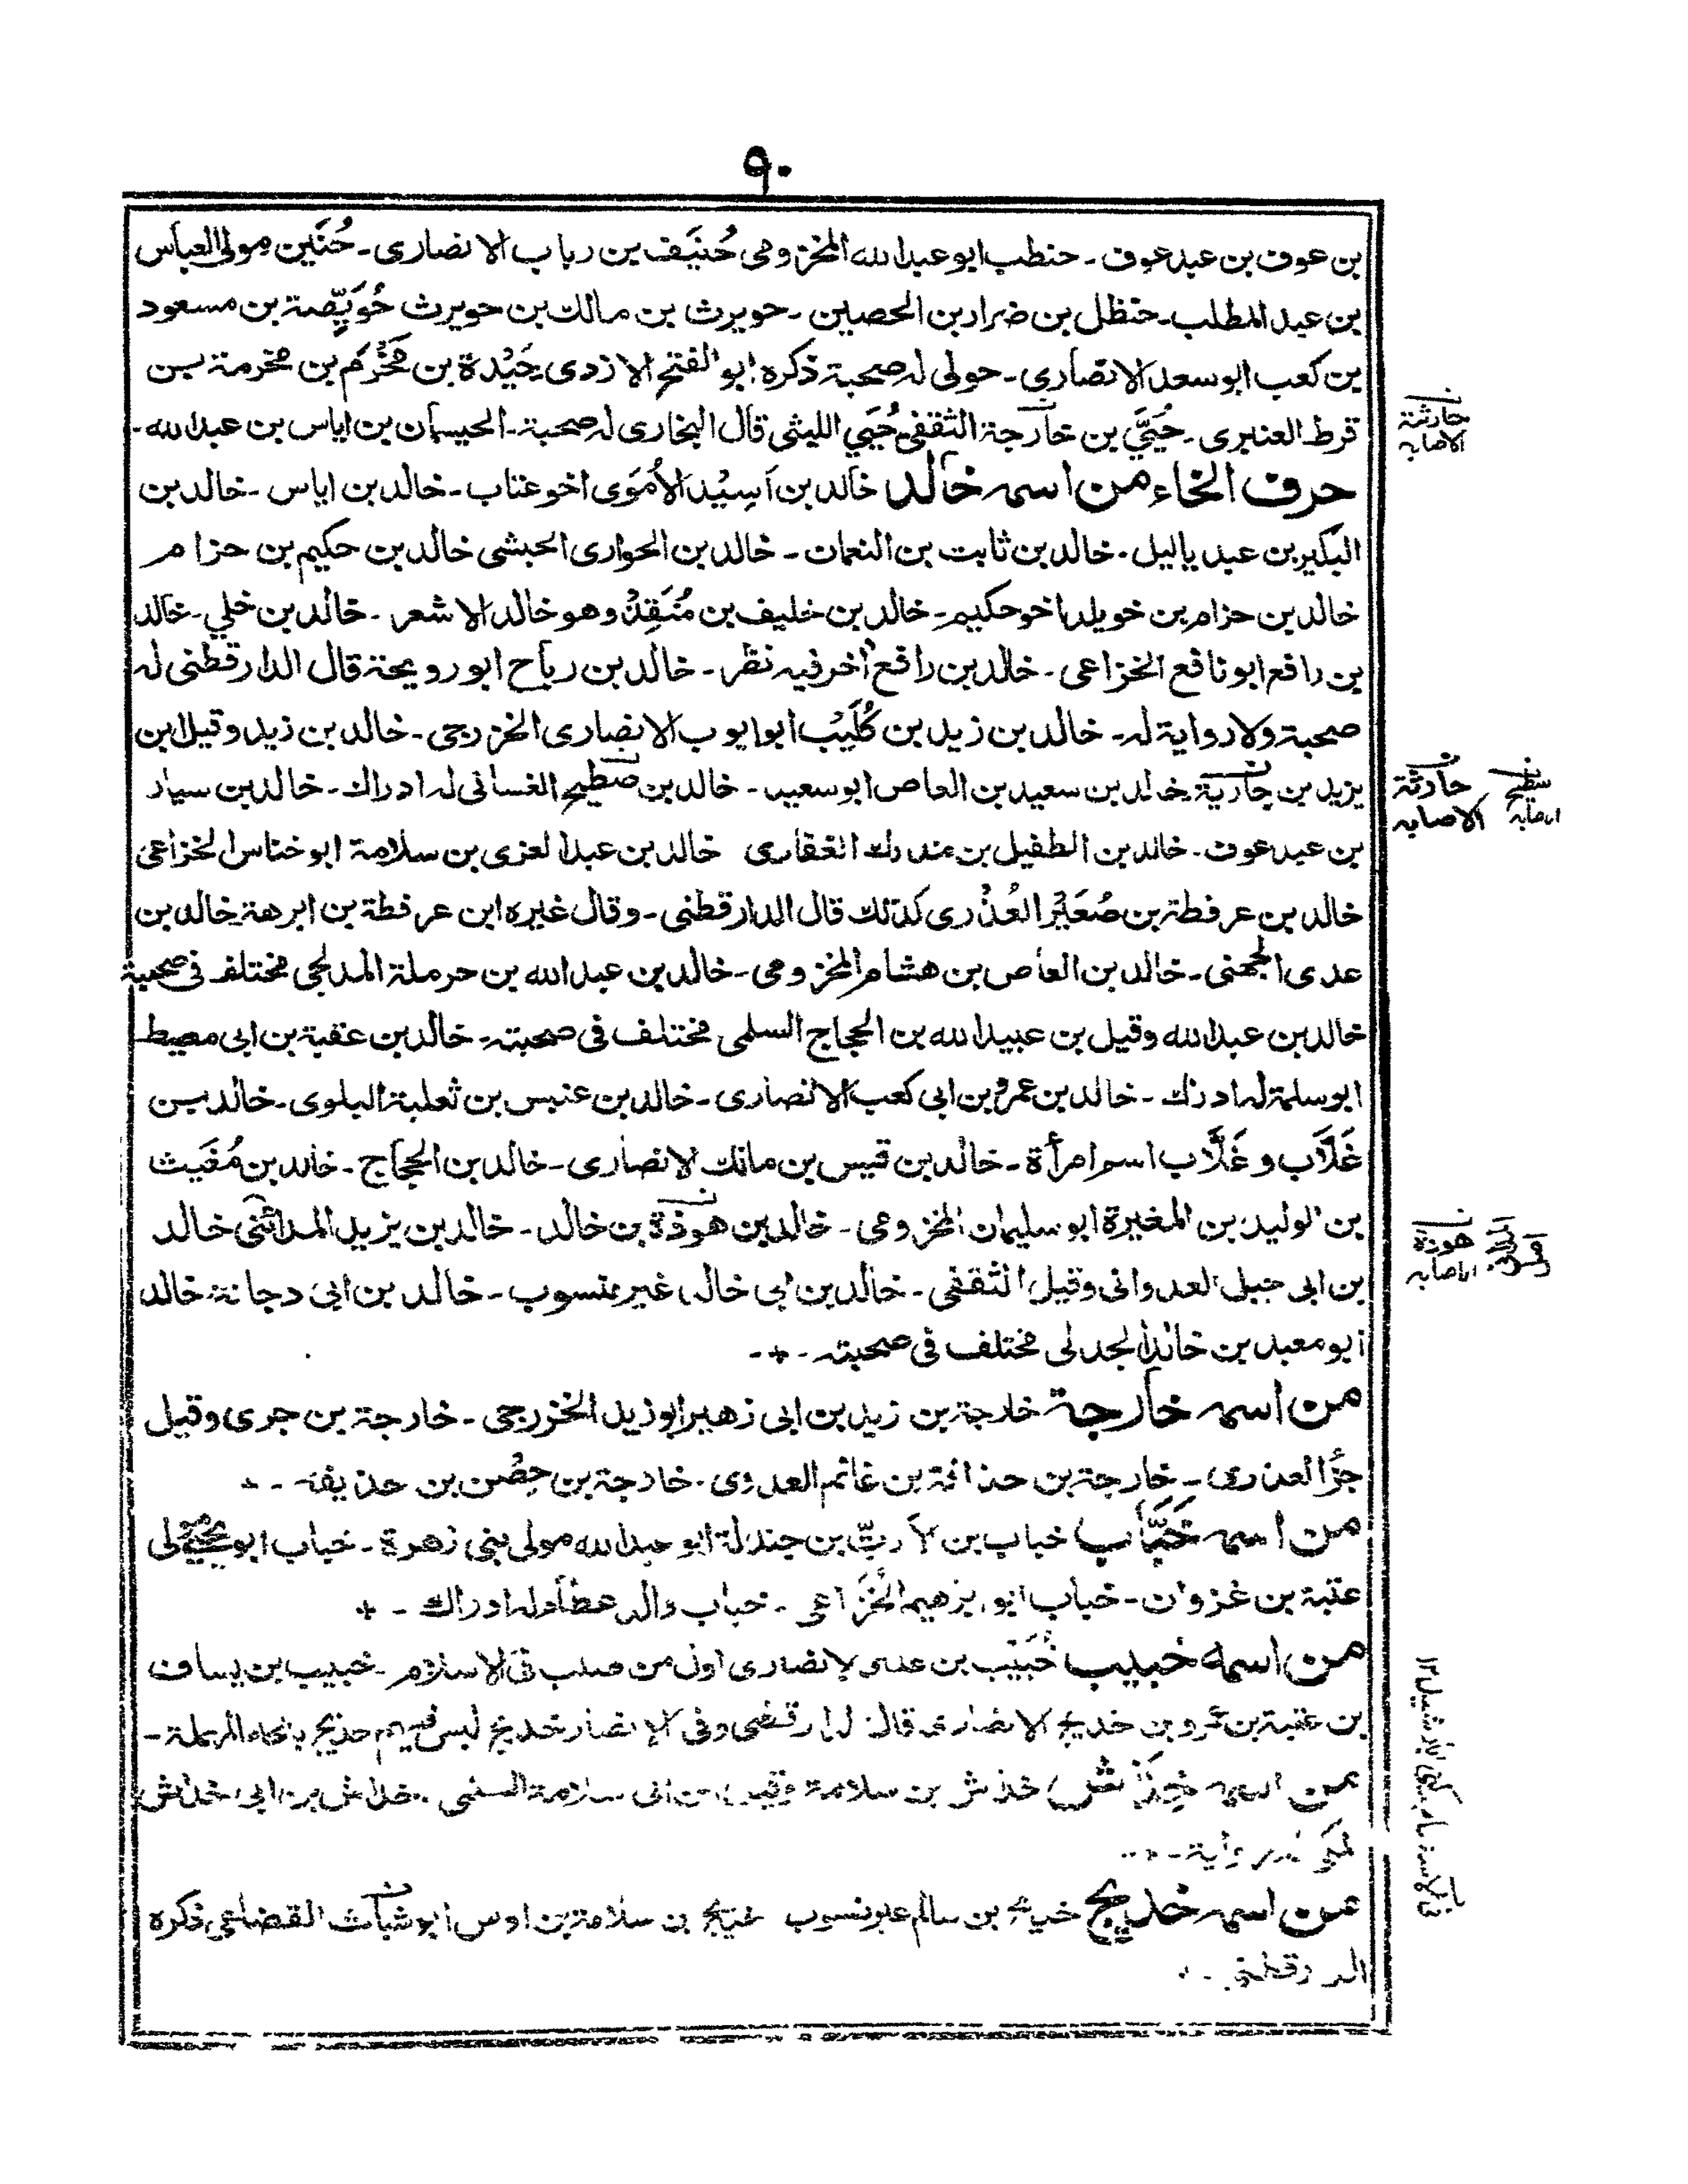 ٩٠
بن عوف بن عبد عوف - حنطب ابو عبد الله المخزومى حُنَيف بن رباب الانصارى - حُنَين مولى العباس
بن عبد المطلب - حنظل بن ضرار بن الحصين - حويرث بن مالك بن حويرث حُوَيِّصة بن مسعود
بن كعب ابو سعد الانصارى - حولى له صحبة ذكره ابو الفتح الازدى حَيْدة بن مُخَرَّم بن مخرمة بن
قرط العنبرى - حُيَيّ بن خارجة الثقفى حُيَي الليثى قال البخارى له صحبة - الحيسمان بن اياس بن عبد الله -
حرف الخاء من اسمه خالد خالد بن اَسِيْد الاُمَوى اخو عتاب - خالد بن اياس - خالد بن
البكير بن عبد ياليل - خالد بن ثابت بن النعمان - خالد بن الحوارى الحبشى خالد بن حكيم بن حزام
خالد بن حزام بن خويلد اخو حكيم - خالد بن خليف بن مُنَقِذ وهو خالد الاشعر - خالد بن خلي - خالد
بن رافع ابو نافع الخزاعى - خالد بن رافع اٰخر فيه نظر - خالد بن رباح ابو رويحة قال الدارقطنى له
صحبة ولا رواية له - خالد بن زيد بن كُلَيْب ابو ايوب الانصارى الخزرجى - خالد بن زيد وقيل ابن
يزيد بن جارية خالد بن سعيد بن العاص ابو سعيد - خالد بن صطيح الغسانى له ادراك - خالد بن سيار
بن عبد عوف - خالد بن الطفيل بن مدرك الغفارى خالد بن عبد العزى بن سلامة ابو خناس الخزاعى
خالد بن عرفطة بن صُعَيْر العُذْرى كذلك قال الدارقطنى - وقال غيره ابن عرفطة بن ابرهة خالد بن
عدى الجهنى - خالد بن العاص بن هشام المخزومى - خالد بن عبد الله بن حرملة المدلجى مختلف فى صحبة
خالد بن عبد الله وقيل بن عبيد الله بن الحجاج السلمى مختلف فى صحبته - خالد بن عقبة بن ابى معيط
ابو سلمة له ادراك - خالد بن عمرو بن ابى كعب الانصارى - خالد بن عنبس بن ثعلبة البلوى - خالد بن
غَلَاب وغَلَّاب اسم امرأة - خالد بن قيس بن مالك الانصارى - خالد بن الحجاج - خالد بن مُغَيث
بن الوليد بن المغيرة ابو سليمان المخزومى - خالد بن هوذة بن خالد - خالد بن يزيد المدائنى خالد
بن ابى جبل العدوانى وقيل الثقفى - خالد بن ابى خالد غير منسوب - خالد بن ابى دجانة خالد
ابو معبد بن خالد الجدلى مختلف فى صحبته -+-
من اسمه خارجة خارجة بن زيد بن ابى زهير ابو زيد الخزرجى - خارجة بن جرى وقيل
جزأ العذرى - خارجة بن حذافة بن غانم العدوى - خارجة بن حِصْن بن حذيفة - -
من اسمه خَبَّاب خباب بن الارتّ بن جندلة ابو عبد الله مولى بنى زهرة - خباب ابو يحيى مولى
عتبة بن غزوان - خباب ابو ابرهيم الخُزَاعى - خباب والد عطاء له ادراك - +
من اسمه خبيب خُبَيْب بن عدى الانصارى اول من صلب فى الاسلام - خبيب بن يساف
بن عتبة بن عمرو بن خديج الانصارى قال الدارقطنى وفى الانصار خديج ليس فيهم حديج بالحاء المهملة -
من اسمه خِدَاش خداش بن سلامة وقيل بن ابى سلامة السلمى - خداش بن ابى خداش
المكى له رواية - -
من اسمه خديج خديج بن سالم غير منسوب خديج بن سلامة بن اوس ابو شباث القضاعى ذكره
الدارقطنى - -
حارثة
الاصابه
حارثة
الاصابه
سطيح
اصابه
هوذة
اصابه